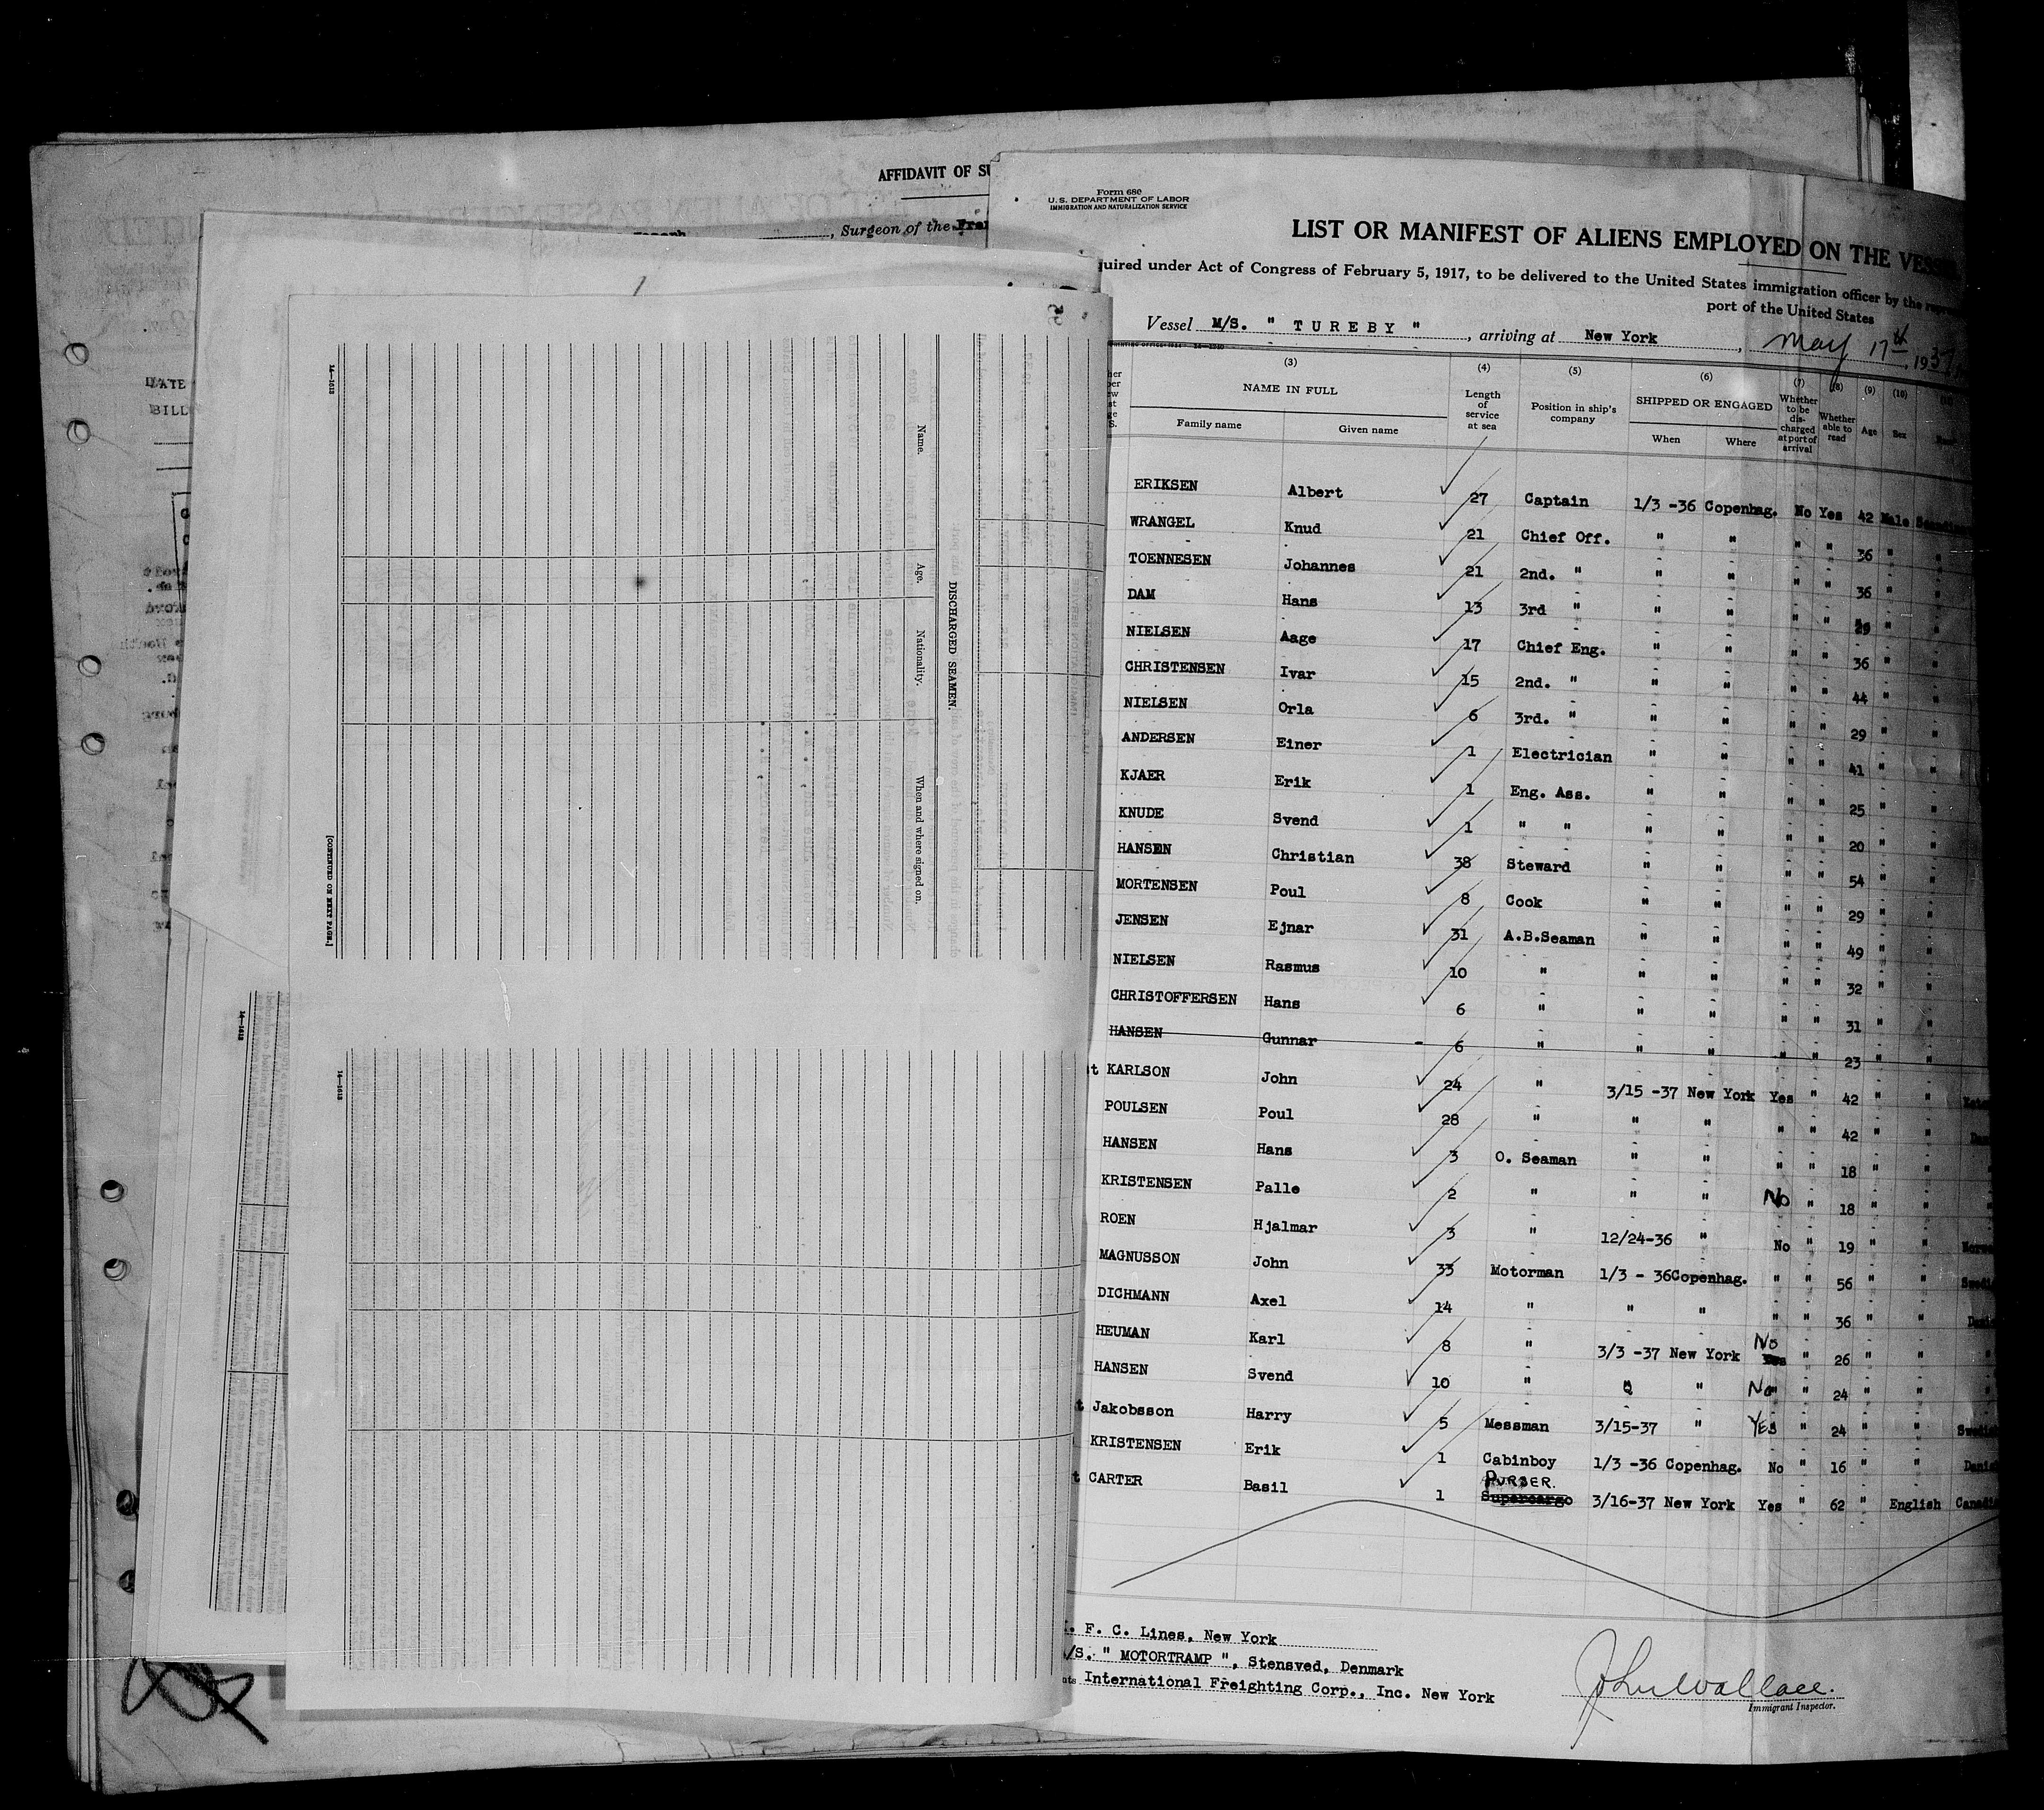 AFFIDAVIT OF
, Surgeon of the
DATE
BILL
Name.
Age.
Nationality.
When and where signed on.
DISCHARGED SEAMEN.
[CONTINUED ON NEXT PAGE.]
14—1613
14—1613
14—1613
Form 680
U. S. DEPARTMENT OF LABOR
IMMIGRATION AND NATURALIZATION SERVICE
LIST OR MANIFEST OF ALIENS EMPLOYED ON THE
quired under Act of Congress of February 5, 1917, to be delivered to the United States immigration officer by the
port of the United States
Vessel M/S. " TUREBY ", arriving at New York, May 17th, 1937
(3) (4) (5) (6) (7) (8) (9) (10)
NAME IN FULL
Family name Given name
Length of service at sea
Position in ship's company
SHIPPED OR ENGAGED
When Where
Whether to be discharged at port of arrival
Whether able to read
Age
Sex
ERIKSEN Albert 27 Captain 1/3 -36 Copenhag. No Yes 42 Male
WRANGEL Knud 21 Chief Off. " " " " 36 " "
TOENNESEN Johannes 21 2nd. " " " " " 36 " "
DAM Hans 13 3rd " " " " " 29 " "
NIELSEN Aage 17 Chief Eng. " " " " 36 " "
CHRISTENSEN Ivar 15 2nd. " " " " " 44 " "
NIELSEN Orla 6 3rd. " " " " " 29 " "
ANDERSEN Einer 1 Electrician " " " " 41 " "
KJAER Erik 1 Eng. Ass. " " " " 25 " "
KNUDE Svend 1 " " " " " " 20 " "
HANSEN Christian 38 Steward " " " " 54 " "
MORTENSEN Poul 8 Cook " " " " 29 " "
JENSEN Ejnar 31 A.B.Seaman " " " " 49 " "
NIELSEN Rasmus 10 " " " " " 32 " "
CHRISTOFFERSEN Hans 6 " " " " " 31 " "
HANSEN Gunnar - 6 " " " " " 23 " "
t KARLSON John 24 " 3/15 -37 New York Yes " 42 " "
POULSEN Poul 28 " " " " " 42 " "
HANSEN Hans 3 O. Seaman " " " " 18 " "
KRISTENSEN Palle 2 " " " No " 18 " "
ROEN Hjalmar 3 " 12/24-36 " No " 19 " "
MAGNUSSON John 33 Motorman 1/3 - 36 Copenhag. " " 56 " "
DICHMANN Axel 14 " " " " " 36 " "
HEUMAN Karl 8 " 3/3 -37 New York No " 26 " "
HANSEN Svend 10 " " " No " 24 " "
t Jakobsson Harry 5 Messman 3/15-37 " YES " 24 " "
KRISTENSEN Erik 1 Cabinboy 1/3 -36 Copenhag. No " 16 " "
PURSER.
t CARTER Basil 1 Supercargo 3/16-37 New York Yes " 62 " English
F. C. Lines, New York
/S. " MOTORTRAMP ", Stensved, Denmark
International Freighting Corp., Inc. New York
John Wallace.
Immigrant Inspector.